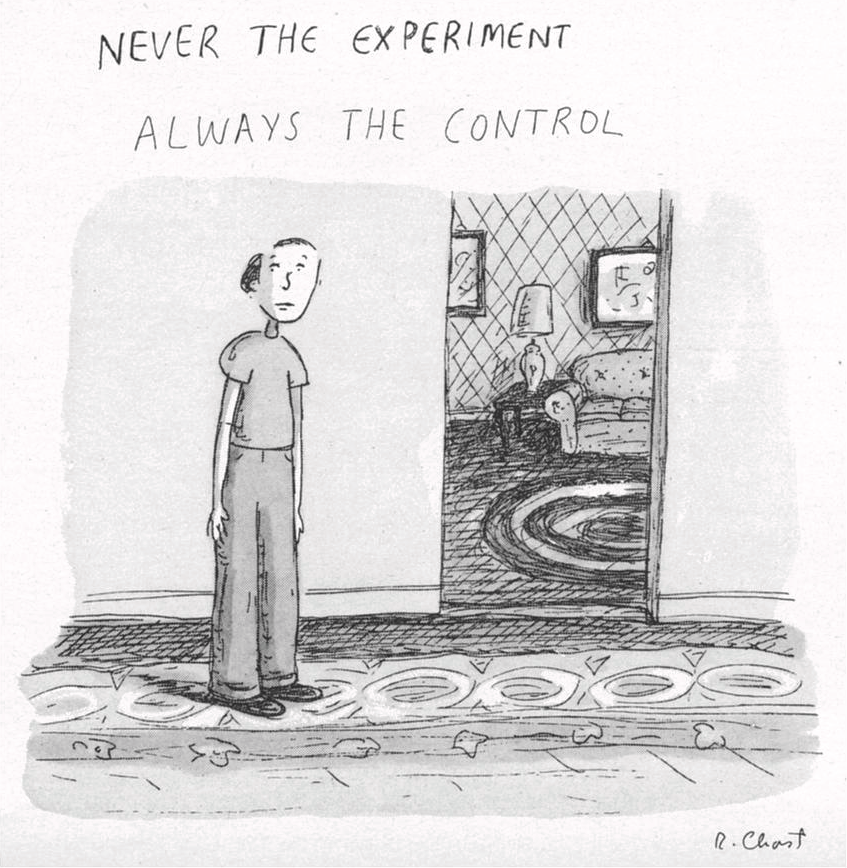 NEVER THE EXPERIMENT
ALWAYS THE CONTROL
R. Chast